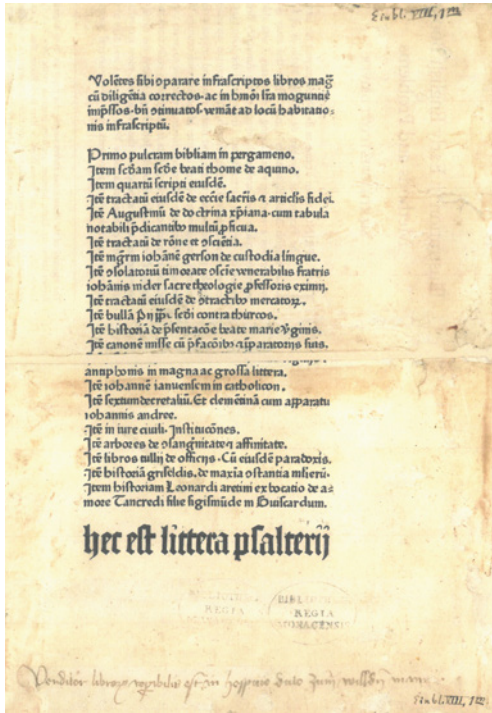 Einbl. VIII, 1 m
Volētes sibi ↄparare infrascriptos libros mag̃
cū diligētia correctos. ac in hmōi l̃ra moguntie
imp̃ssos. bñ ↄtinuatos. veniāt ad locū habitatio-
nis infrascriptū.
Primo pulcram bibliam in pergameno.
Item sc̃dam sc̃de beati thome de aquino.
Item quartū scripti eiusdē.
Itē tractatū eiusdē de ecc̃ie sacr̃is ⁊ articl̃is fidei.
Itē Augustinū de doctrina xp̃iana. cum tabula
notabili p̃dicantibꝰ multū ꝓficua.
Itē tractatū de rõne et ↄsciētia.
Itē mg̃rm iohānē gerson de custodia lingue.
Itē ↄsolatoriū timorate ↄsc̃ie venerabilis fratris
iohānis nider sacre theologie ꝓfessoris eximij.
Itē tractatū eiusdē de ↄtractibꝰ mercatoꝝ.
Itē bullā Pij pp̃. sc̃di contra thurcos.
Itē historiā de p̃sentacõe beate marie ꝟginis.
Itē canonē misse cū p̃facõibꝰ ⁊ īparatorijs suis.
antiphonis in magna ac grossa littera.
Itē iohannē ianuensem in catholicon.
Itē sextumdecretaliū. Et clemētinā cum apparatu
iohannis andree.
Itē in iure ciuili. Institucõnes.
Itē arbores de ↄsang̃nitate ⁊ affinitate.
Itē libros tullij de officijs. Cū eiusdē paradoxis.
Itē historiā griseldis. de maxīa ↄstantia mulierū.
Item historiam Leonardi aretini ex bocatio de a-
more Tancredi filie sigismūde in Guiscardum.
hec est littera psalterij
BIBLIOTHECA
REGIA
MONACENSIS
Venditor libroꝝ repibilis est in hospicio dicto zum willden mann
Einbl. VIII, 1 m